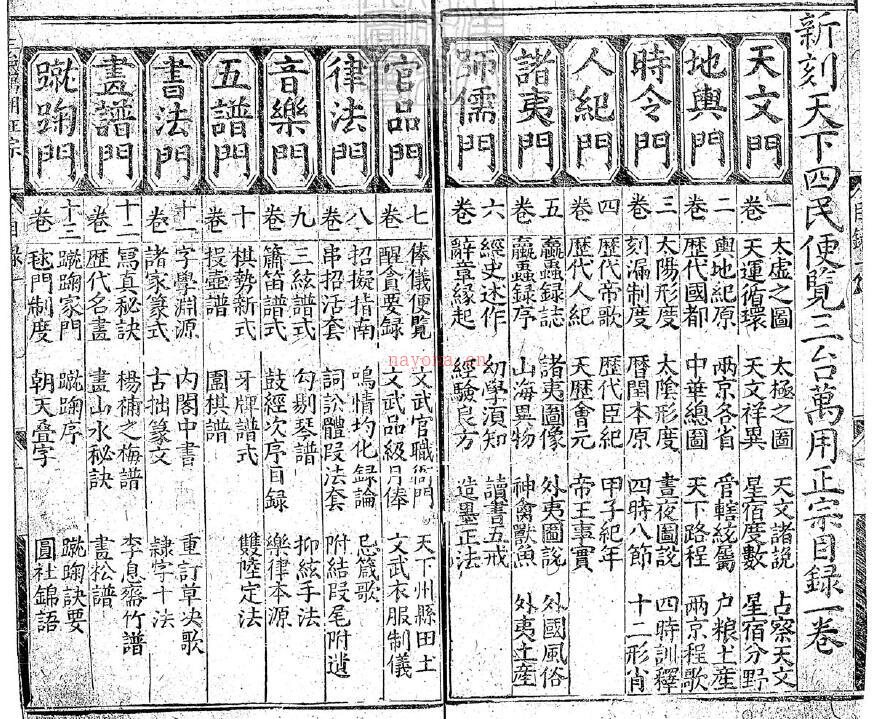 新刻天下四民便覽三台萬用正宗目録一卷
天文門
一卷
太虛之圖 太極之圖 天文諸說 占察天文
天運循環 天文祥異 星宿度數 星宿分野
地輿門
二卷
輿地紀原 兩京各省 管轄統屬 户粮土産
歷代國都 中華總圖 天下路程 兩京程歌
時令門
三卷
太陽形度 太陰形度 晝夜圖説 四時訓釋
刻漏制度 曆閏本原 四時八節 十二形肖
人紀門
四卷
歷代帝歌 歷代臣紀 甲子紀年
歷代人紀 天歷會元 帝王事實
諸夷門
五卷
蠃蟲録誌 諸夷圖像 外夷圖説 外國風俗
蠃蟲録序 山海異物 神禽獸魚 外夷土産
師儒門
六卷
經史述作 幼學湏知 讀書五戒
辭章縁起 經驗良方 造墨正法
官品門
七卷
俸儀便覽 文武官職衙門 天下州縣田土
醒貪要録 文武品級月俸 文武衣服制儀
律法門
八卷
招擬指南 鳴情均化録論 忌箴歌
串招活套 詞訟體段法套 附結段尾附遺
音樂門
九卷
三絃譜式 勾剔琴譜 抑絃手法
簫笛譜式 鼓經次序目録 樂律本源
五譜門
十卷
棋勢新式 牙牌譜式 雙陸定法
投壺譜 圍棋譜
書法門
十一卷
字學淵源 内閣中書 重訂草決歌
諸家篆式 古拙篆文 隷字十法
畫譜門
十二卷
寫真秘訣 楊補之梅譜 李息齋竹譜
歷代名畫 畫山水秘訣 畫松譜
蹴踘門
十三卷
蹴踘家門 蹴踘序 蹴踘訣要
毬門制度 朝天叠字 圓社錦語
nayona.cn